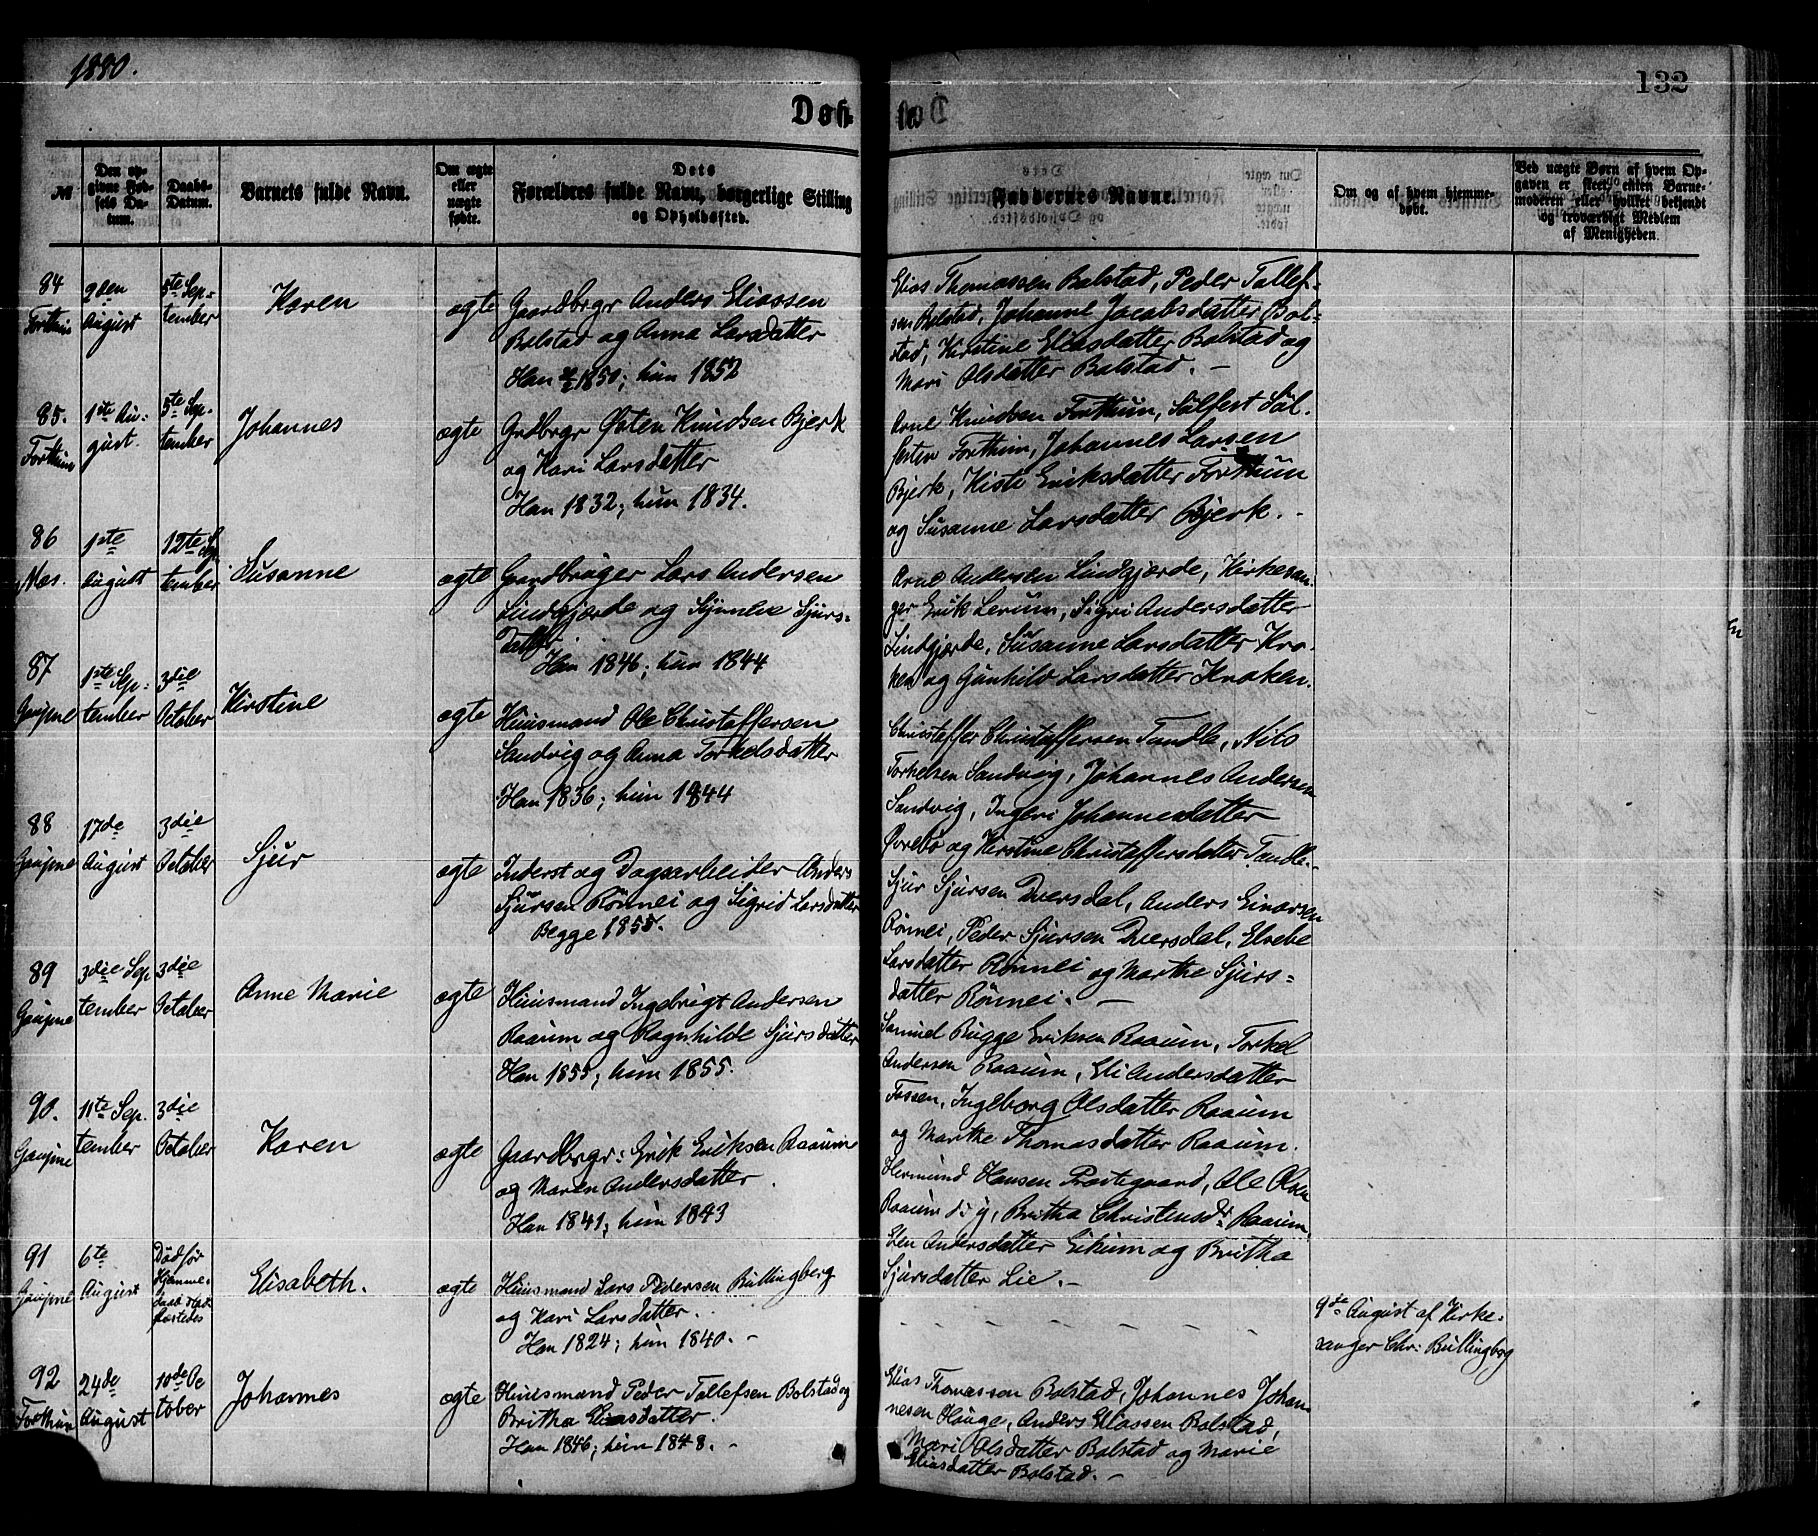 1880.
132
Døb
№
Den opgivne Fødsels Datum.
Daabs-Datum.
Barnets fulde Navn.
Om ægte eller uægte fødte.
Dets Forældres fulde Navn, borgerlige Stilling og Opholdssted.
Faddernes Navne.
Om og af hvem hjemmedøbt.
Ved uægte Børn af hvem Opgaven er skeet, enten Barnemoderen eller hvilket bekjendt og troværdigt Medlem af Menigheden.
84
Forthun
2den
August
5te Sep-
tember
Karen
ægte
Gaardbrgr Anders Eliassen
Bolstad og Anna Larsdatter
Han 1850; hun 1852
Elias Thomassen Bolstad, Peder Tollef-
sen Bolstad, Johanne Jacobsdatter Bol-
stad, Kirstine Eliasdatter Bolstad og
Mari Olsdatter Bolstad. –
85.
Forthun
1ste Au-
gust.
5te Sep-
tember
Johannes
ægte
Grdbrgr Østen Knudsen Bjerk
og Kari Larsdatter
Han 1832; hun 1834.
Arne Knudsen Forthun, Sølfest Søl-
festen Forthun, Johannes Larsen
Bjerk, Kiste Eriksdatter Forthun
og Susanne Larsdatter Bjerk. –
86
Næs.
1ste
August
12te Sep-
tember
Susanne
ægte
Gaardbruger Lars Andersen
Lindgjærde og Synneve Sjurs-
datter
Han 1846; hun 1844
Arne Andersen Lindgjærde, Kirkesan-
ger Erik Lerum, Sigri Andersdatter
Lindgjærde, Susanne Larsdatter Kro-
ken og Gunhild Larsdatter Kroken.
87
Gaupne
1ste Sep-
tember
3die
October
Kirstine
ægte
Huusmand Ole Christoffersen
Sandvig og Anna Torkelsdatter
Han 1836; hun 1844
Christoffer Christoffersen Tandle, Nils
Torkelsen Sandvig, Johannes Andersen
Sandvig, Ingeri Johannesdatter
Øvrebø og Kirstine Christoffersdatter Tandle.
88
Gaupne
17de
August
3die
October
Sjur
ægte
Inderst og Dagsarbeider Anders
Sjursen Rønnei og Sigrid Larsdatter
Begge 1855.
Sjur Sjursen Dversdal, Anders Einarsen
Rønnei, Peder Sjursen Dversdal, Elsebe
Larsdatter Rønnei og Marthe Sjurs-
datter Rønnei. –
89
Gaupne
3die Sep-
tember
3die
October
Anne Marie
ægte
Huusmand Ingebrigt Andersen
Raaum og Ragnhilde Sjursdatter
Han 1855; hun 1855.
Samuel Bugge Eriksen Raaum, Torkel
Andersen Raaum, Eli Andersdatter
Fossen, Ingeborg Olsdatter Raaum
og Marthe Thomasdatter Raaum.
90.
Gaupne
11te Sep-
tember
3die
October
Karen
ægte
Gaardbrgr: Erik Eriksen Raaum
og Maren Andersdatter.
Han 1841; hun 1843
Hermund Hansen Prestegaard, Ole Olsen
Raaum d: y, Britha Christensdr Raaum,
Andersdatter Eikum og Britha
Sjursdatter Lie. –
91
Gaupne
6te
August
Død før
Hjemme-
daab stad-
fæstedes
Elisabeth.
ægte
Huusmand Lars Pedersen Bullingberg
og Kari Larsdatter.
Han 1824; hun 1840. –
9de August af Kirke-
sanger Chr: Bullingberg
92
Forthun
24de
August
10de Oc
tober
Johannes
ægte
Huusmand Peder Tollefsen Bolstad og
Britha Eliasdatter.
Han 1846; hun 1848. –
Elias Thomassen Bolstad, Johannes Johan-
nesen Hauge, Anders Eliassen Bolstad,
Mari Olsdatter Bolstad og Marie
Eliasdatter Bolstad. –